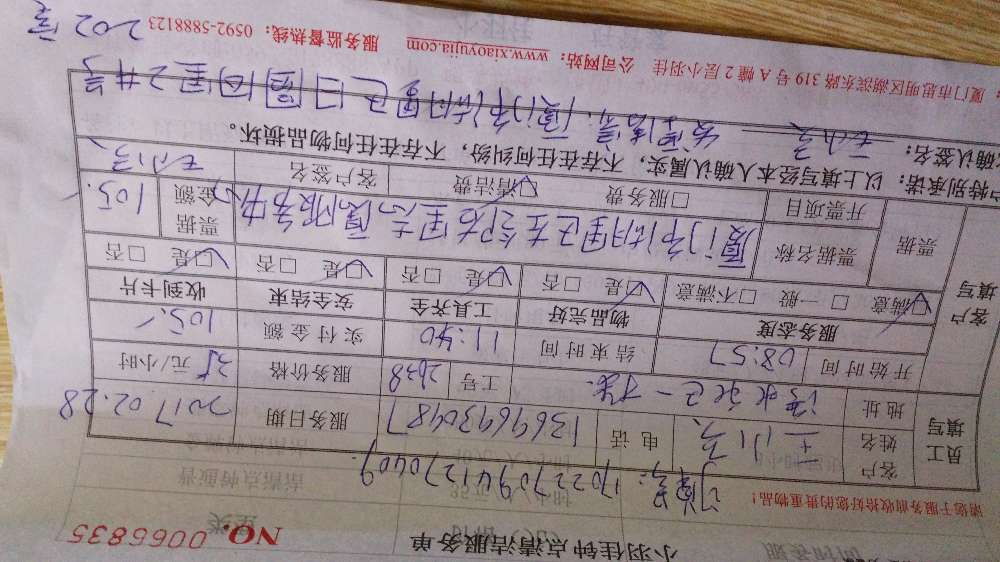 小羽佳钟点清洁服务单
NO. 0066835
请您于服务前收拾好您的贵重物品!
订单号: 17022709441270409
员工填写
客户姓名 王小子 电话 13696930487 服务日期 2017.02.28
地址 工号 2638 服务价格 35元/小时
开始时间 08:57 结束时间 11:40 实付金额 105.-
客户填写
服务态度 物品完好 工具齐全 安全结束 收到卡片
☑满意 □ 一般 □不满意 ☑是 □否 ☑是 □否 ☑是 □否 ☑是 □否
票据 票据名称 厦门市湖里区 票据金额 105.
开票项目 □服务费 ☑清洁费 客户签名
户特别承诺: 以上填写经本人确认属实, 不存在任何纠纷, 不存在任何物品损坏。
确认签名:
厦门市湖里区 2#号
202室
: 厦门市思明区湖滨东路 319 号 A 幢 2 层小羽佳 公司网站: www.xiaoyujia.com 服务监督热线: 0592-5888123